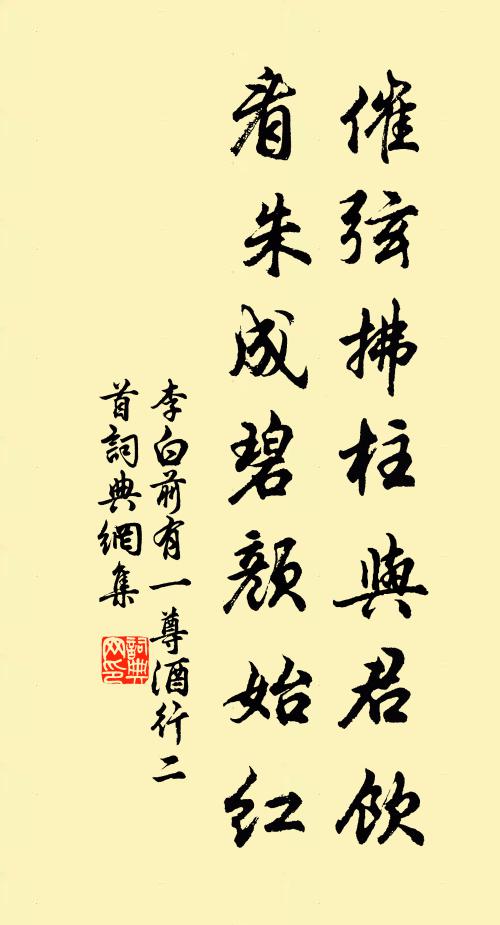 催弦拂柱與君飲
看朱成碧顏始紅
李白前有一尊酒行二
首詞典網集
詞典
网印